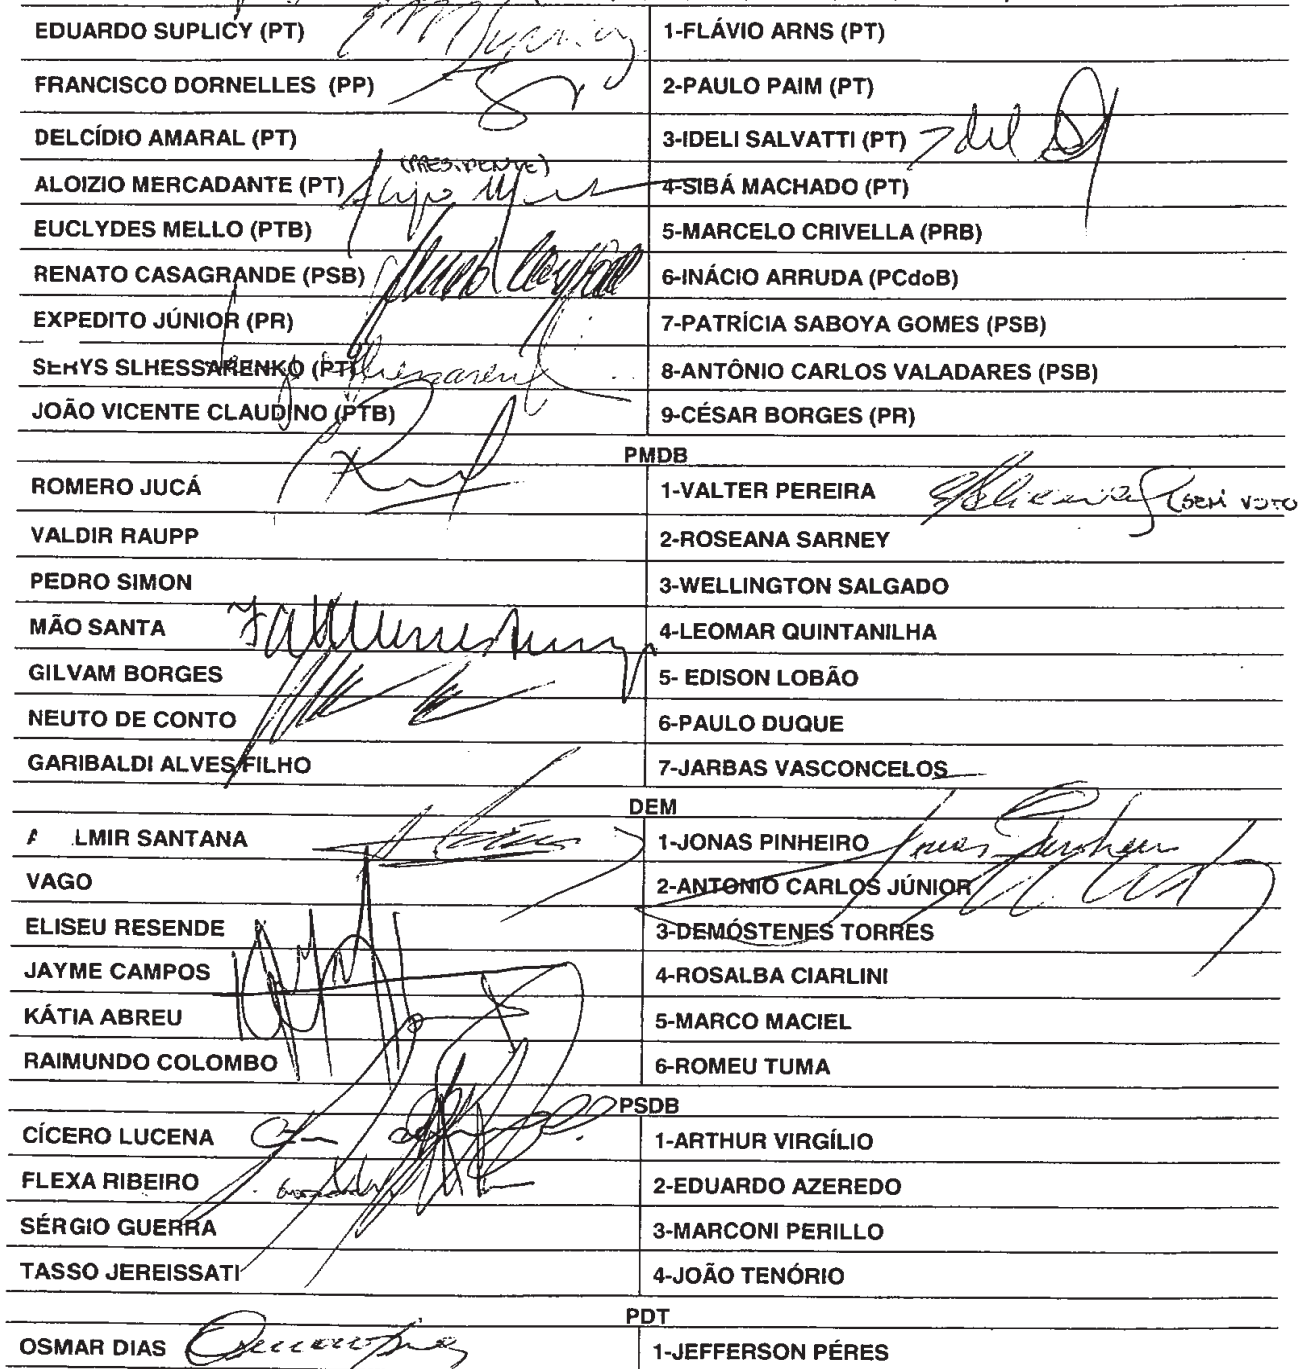 EDUARDO SUPLICY (PT) 1-FLÁVIO ARNS (PT)
FRANCISCO DORNELLES (PP) 2-PAULO PAIM (PT)
DELCÍDIO AMARAL (PT) 3-IDELI SALVATTI (PT)
(PRESIDENTE)
ALOIZIO MERCADANTE (PT) 4-SIBÁ MACHADO (PT)
EUCLYDES MELLO (PTB) 5-MARCELO CRIVELLA (PRB)
RENATO CASAGRANDE (PSB) 6-INÁCIO ARRUDA (PCdoB)
EXPEDITO JÚNIOR (PR) 7-PATRÍCIA SABOYA GOMES (PSB)
SERYS SLHESSARENKO (PT) 8-ANTÔNIO CARLOS VALADARES (PSB)
JOÃO VICENTE CLAUDINO (PTB) 9-CÉSAR BORGES (PR)
PMDB
ROMERO JUCÁ 1-VALTER PEREIRA (SEM VOTO
VALDIR RAUPP 2-ROSEANA SARNEY
PEDRO SIMON 3-WELLINGTON SALGADO
MÃO SANTA 4-LEOMAR QUINTANILHA
GILVAM BORGES 5- EDISON LOBÃO
NEUTO DE CONTO 6-PAULO DUQUE
GARIBALDI ALVES FILHO 7-JARBAS VASCONCELOS
DEM
LMIR SANTANA 1-JONAS PINHEIRO
VAGO 2-ANTONIO CARLOS JÚNIOR
ELISEU RESENDE 3-DEMÓSTENES TORRES
JAYME CAMPOS 4-ROSALBA CIARLINI
KÁTIA ABREU 5-MARCO MACIEL
RAIMUNDO COLOMBO 6-ROMEU TUMA
PSDB
CÍCERO LUCENA 1-ARTHUR VIRGÍLIO
FLEXA RIBEIRO 2-EDUARDO AZEREDO
SÉRGIO GUERRA 3-MARCONI PERILLO
TASSO JEREISSATI 4-JOÃO TENÓRIO
PDT
OSMAR DIAS 1-JEFFERSON PÉRES